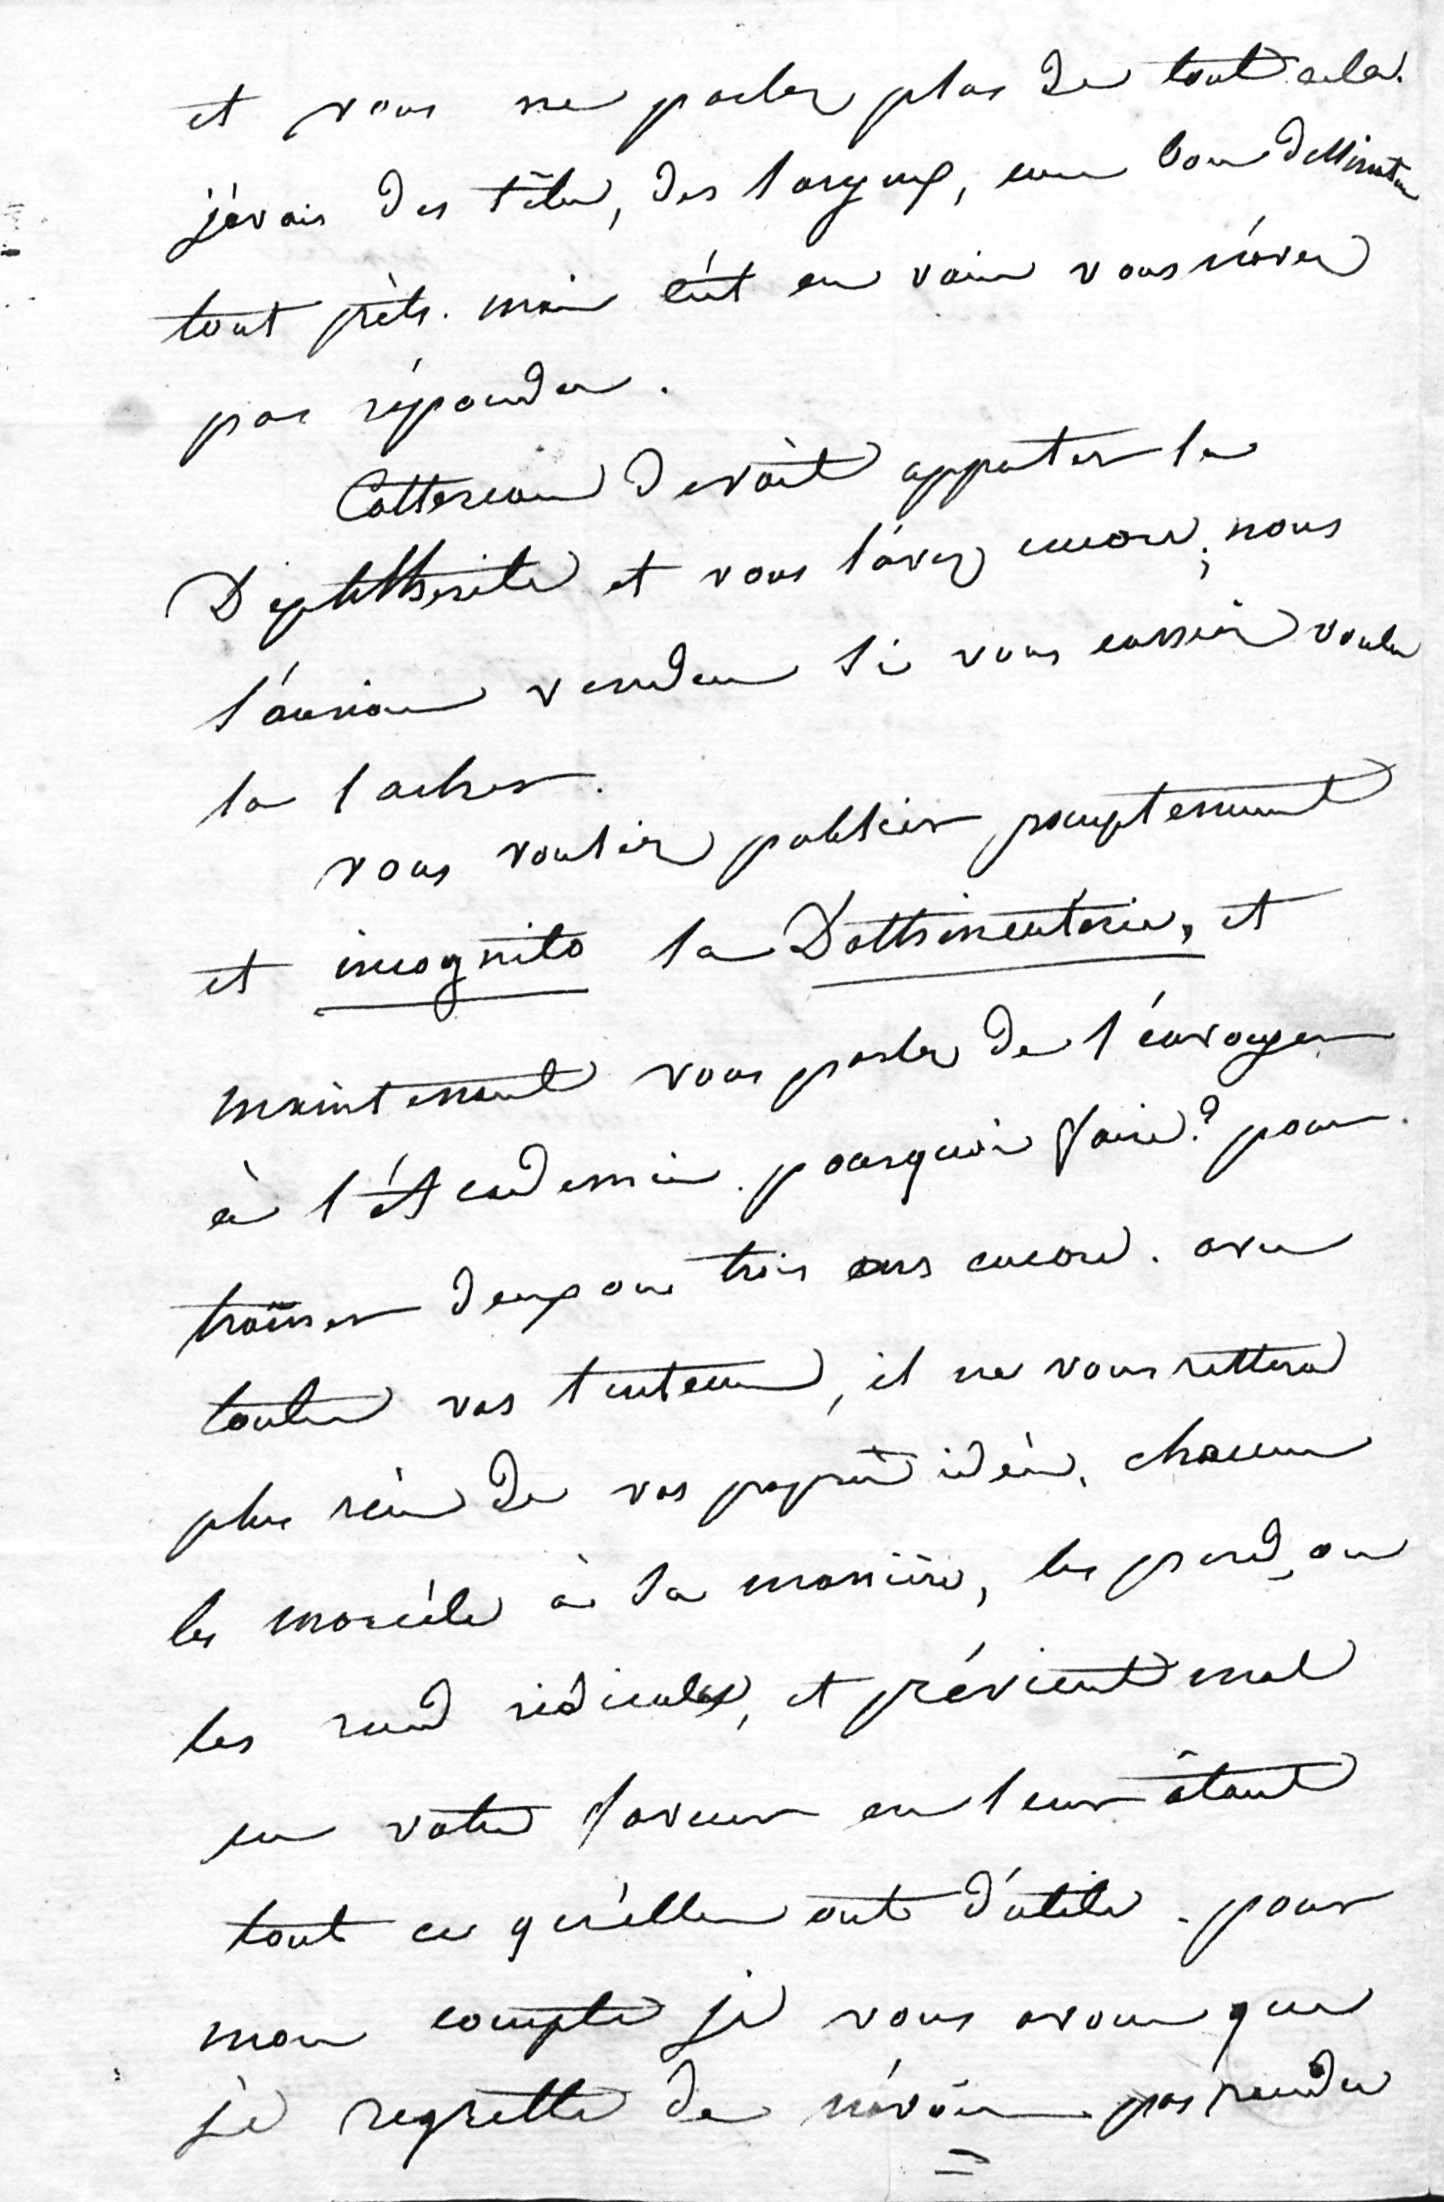 et vous ne parlez plus de tout cela.
j'avais des têtes, des larynx, un bon dessinateur
tout prêts. mais c'ét en vain vous n'avez
pas répondu.
Cottereau devait apporter la
Diphthérite et vous l'avez encore; nous
l'aurions vendue si vous eussiez voulu
la lacher.
vous vouliez publier promptement
et incognito la Dothinenterie, et
maintenant vous parlez de l'envoyer
à l'Académie. pourquoi faire? pour
traîner deux ou trois ans encore. avec
toutes vos lenteurs, il ne vous restera
plus rien de vos propres idées, chacun
les morcèle à sa manière, les perd, ou
les rend ridicules, et prévient mal
en votre faveur en leur ôtant
tout ce qu'elles ont d'utile. pour
mon compte je vous avoue que
je regrette de n'avoir pas rendu